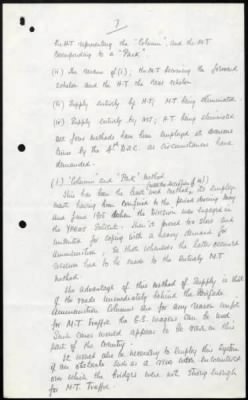 7
the M.T representing the "Column", and the M.T
corresponding to a "Park"
(ii) The reverse of (i); the M.T becoming the forward
echelon and the H.T the rear echelon
(iii) Supply entirely by H.T; M.T being eliminated
(iv) Supply entirely by M.T; H.T being eliminated
All four methods have been employed at various
times by the 4th D.A.C. as circumstances have
demanded.
(i) "Column" and "Park" method
This has been the least used method, its employ
ment having been confined to the period during May
and June 1915 when the Division was engaged in
the YPRES Salient. There it proved too slow and
unsuited for coping with a heavy demand for
ammunition, so that whenever the latter occurred
recourse had to be made to the entirely M.T
method.
The advantage of this method of Supply is that
if the roads immediately behind the Brigade
Ammunition Columns are for any reason unfit
for M.T. Traffic the G.S. wagons can be used
Such cases would appear to be rare in this
part of the country.
It would also be necessary to employ this system
if an obstacle such as a river were encountered
over which the bridges were not strong enough
for M.T. Traffic.